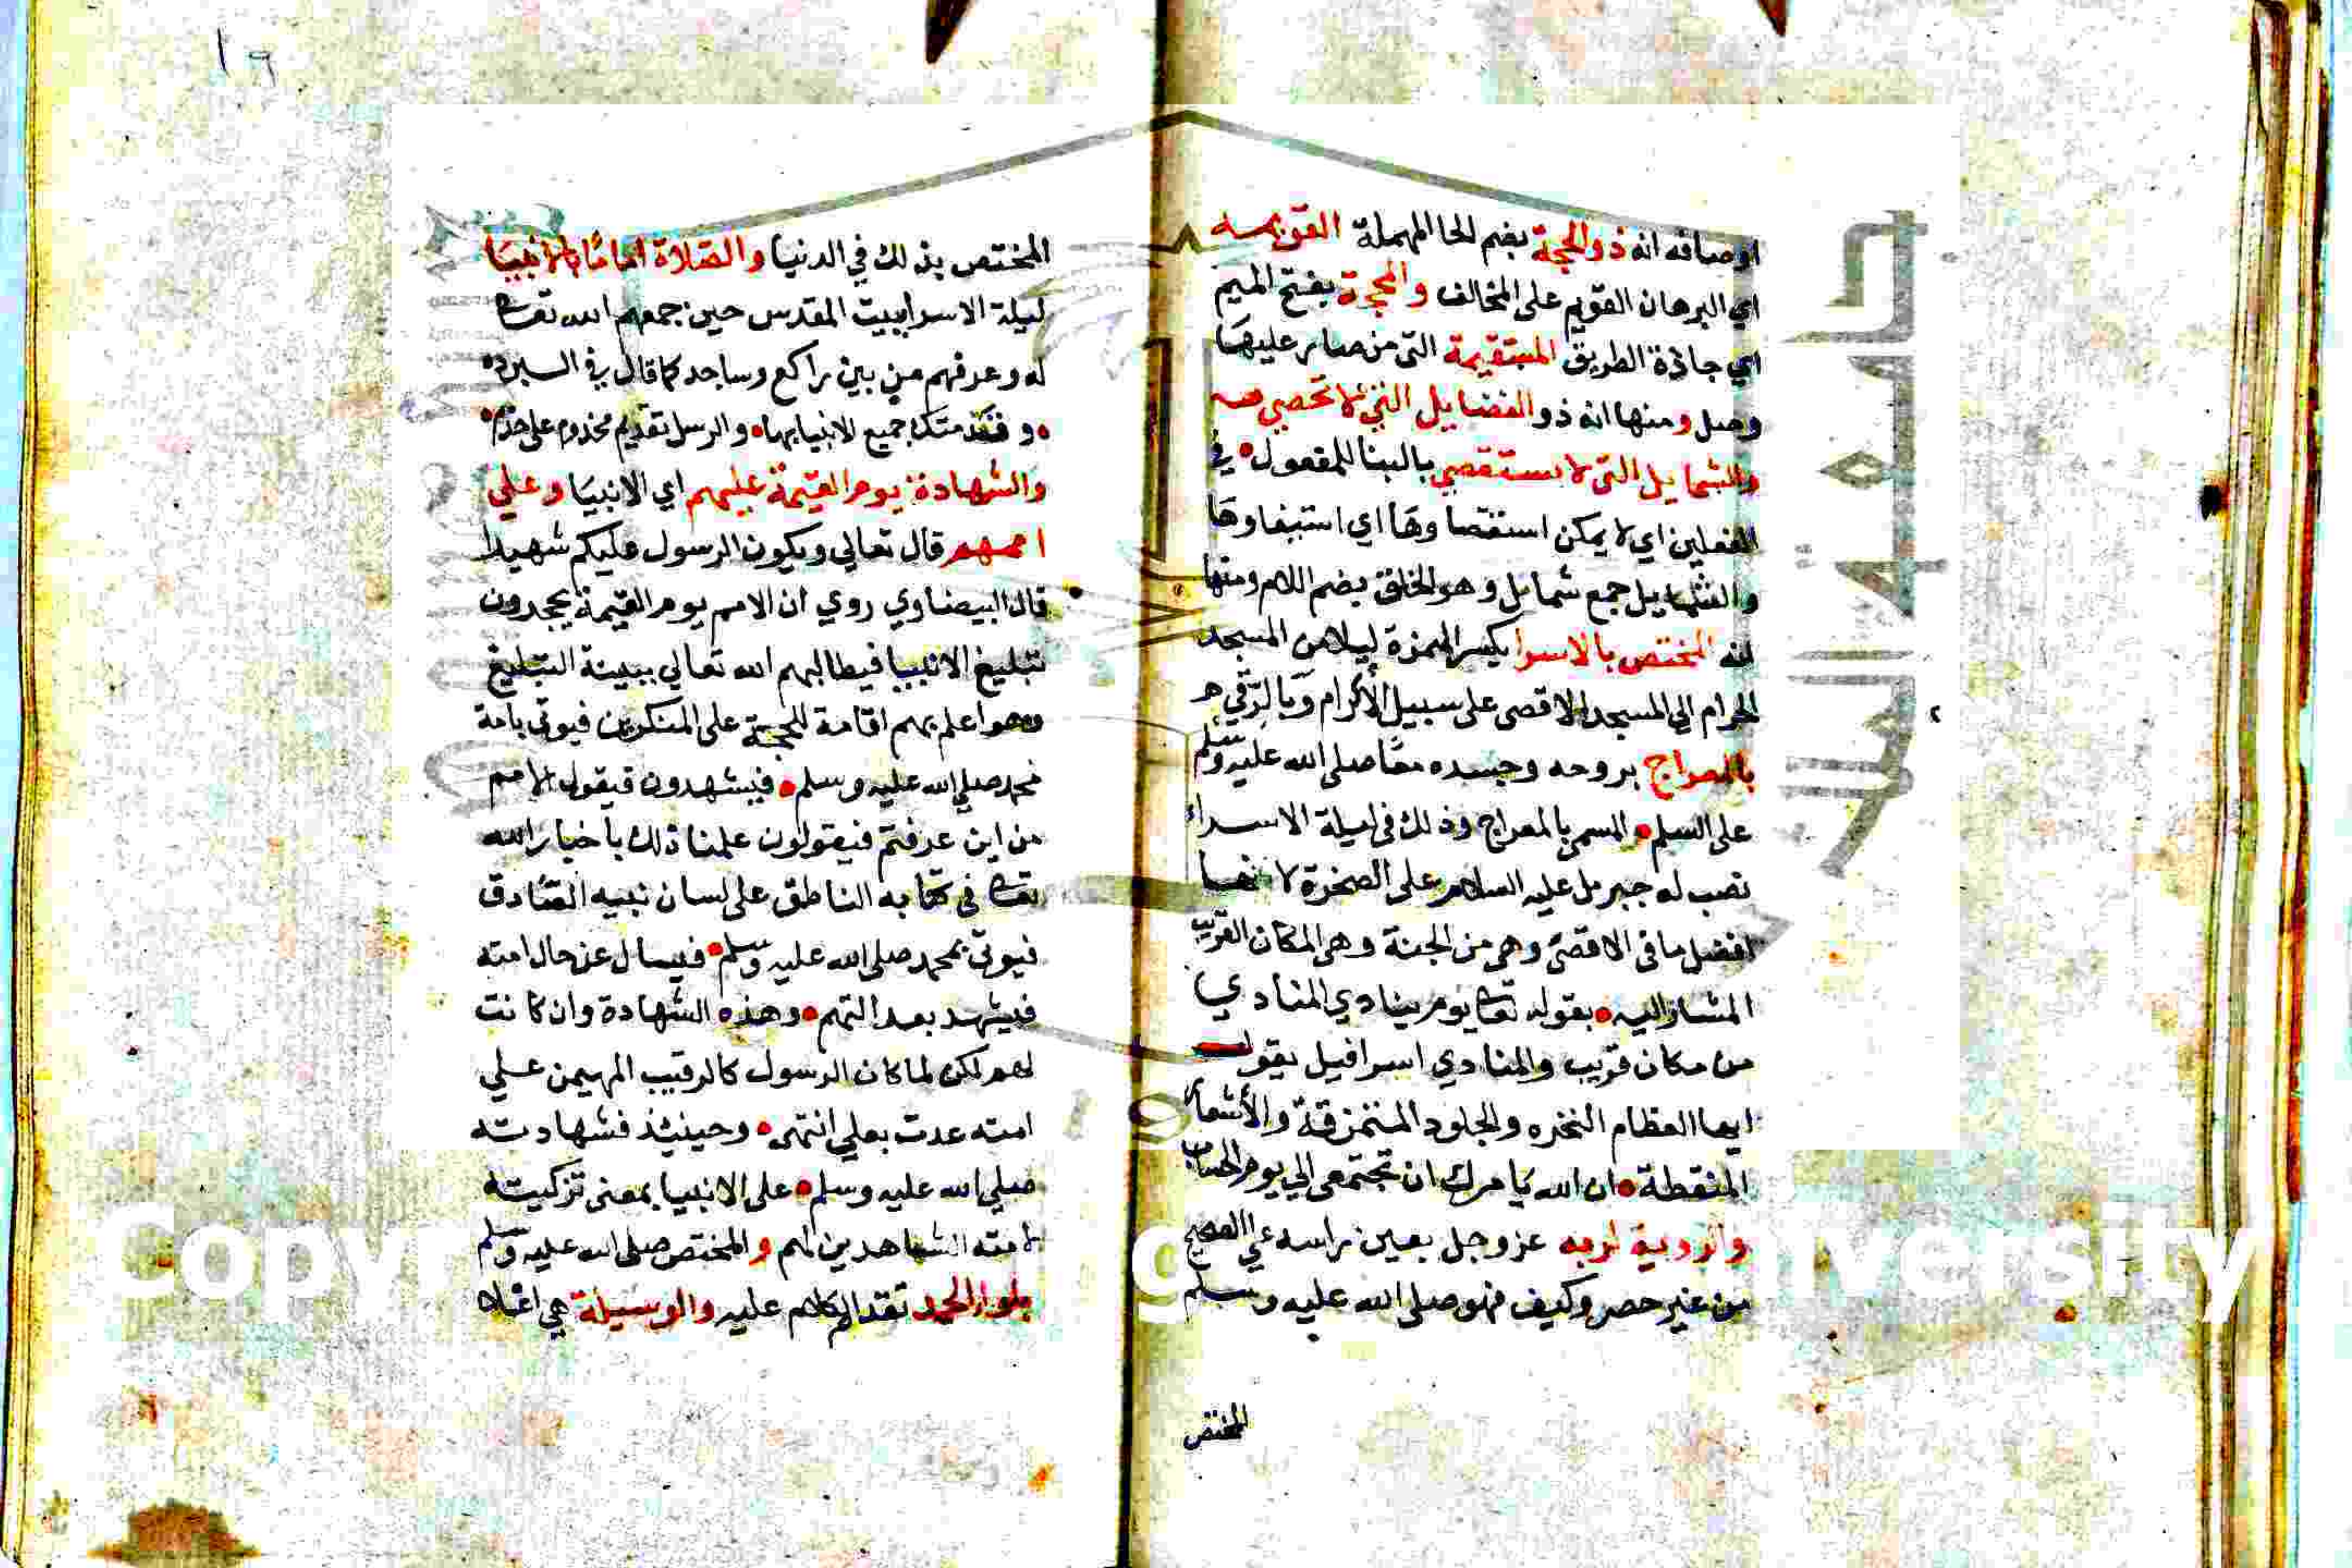 اوصافه انه ذو الحجة بضم الحا المهملة القويمه
اي البرهان القويم على المخالف والمحجة بفتح الميم
اي جادة الطريق المستقيمة التي من صار عليها
وصل ومنها انه ذو الفضايل التي لا تحصى
والشمايل التي لا تستقصي بالبنا للمفعول في
الفعلين اي لا يمكن استقصاوها اي استيفاوها
والشمايل جمع شمايل وهو الخلق بضم اللام ومنها
انه المختص بالاسرا بكسر الهمزة ليلا من المسجد
الحرام الي المسجد الاقصى على سبيل الاكرام وبالرقي
بالمعراج بروحه وجسده معًا صلى الله عليه وسلم
على السلم والمسمى بالمعراج وذلك في ليلة الاسراء
نصب له جبريل عليه السلام على الصخرة لانها
افضل ما في الاقصى وهي من الجنة وهي المكان القريب
المشار اليه بقوله تعا يوم ينادي المنادي
من مكان قريب والمنادي اسرافيل يقول
ايها العظام النخره والجلود المتمزقة والأشعار
المتقطة ان الله يامرك ان تجتمعي الي يوم الحساب
والرؤية لربه عز وجل بعين راسه علي الصحيح
من غير حصر وكيف فهو صلى الله عليه وسلم
المختص
١٩
المختص بذلك في الدنيا والصلاة امامًا بالانبيَا
ليلة الاسرا ببيت المقدس حين جمعهم الله تعا
له وعرفهم من بين راكع وساجد كما قال في البرده
وقدمتك جميع الانبيا بها والرسل تقديم مخدوم على خدم
والشهادة يوم القيمة عليهم اي الانبيَا وعلي
اممهم قال تعالي ويكون الرسول عليكم شهيدا
قال البيضاوي روي ان الامم يوم القيمة يجحدون
تبليغ الانبيا فيطالبهم الله تعالي ببينة التبليغ
وهو اعلم بهم اقامة للحجة على المنكرين فيوتي بامة
محمد صلى الله عليه وسلم فيشهدون فيقول الامم
من اين عرفتم فيقولون علمنا ذلك باخبار الله
تعا في كتابه الناطق على لسان نبيه الصادق
فيوتي بمحمد صلى الله عليه وسلم فيسال عن حال امته
فيشهد بعدالتهم وهذه الشهادة وان كانت
لهم لكن لما كان الرسول كالرقيب المهيمن علي
امته عدت بعلي انتهى وحينئذ فشهادته
صلي الله عليه وسلم على الانبيا بمعنى تزكيته
لامته الشاهدين لهم والمختص صلى الله عليه وسلم
بلواء الحمد تقدم الكلام عليه والوسيلة هي اعلا